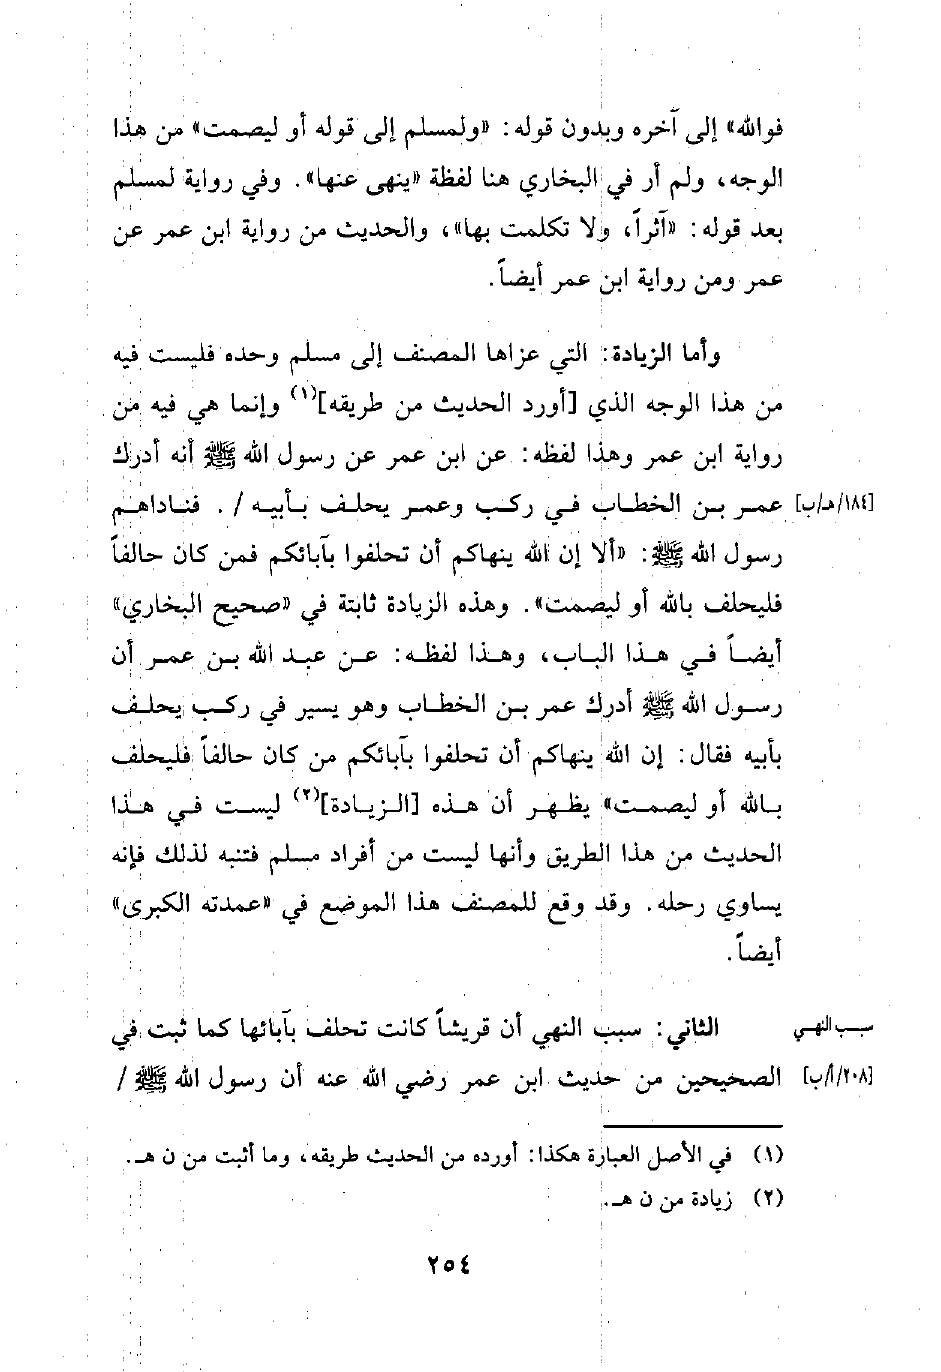 فوالله» إلى آخره وبدون قوله: «ولمسلم إلى قوله أو ليصمت» من هذا
الوجه، ولم أر في البخاري هنا لفظة «ينهى عنها». وفي رواية لمسلم
بعد قوله: «آثراً، ولا تكلمت بها»، والحديث من رواية ابن عمر عن
عمر ومن رواية ابن عمر أيضاً.
وأما الزيادة: التي عزاها المصنف إلى مسلم وحده فليست فيه
من هذا الوجه الذي [أورد الحديث من طريقه](١) وإنما هي فيه من
رواية ابن عمر وهذا لفظه: عن ابن عمر عن رسول الله ﷺ أنه أدرك
[١٨٤/هـ/ب] عمر بن الخطاب في ركب وعمر يحلف بأبيه /. فناداهم
رسول الله ﷺ: «ألا إن الله ينهاكم أن تحلفوا بآبائكم فمن كان حالفاً
فليحلف بالله أو ليصمت». وهذه الزيادة ثابتة في «صحيح البخاري»
أيضاً في هذا الباب، وهذا لفظه: عن عبد الله بن عمر أن
رسول الله ﷺ أدرك عمر بن الخطاب وهو يسير في ركب يحلف
بأبيه فقال: إن الله ينهاكم أن تحلفوا بآبائكم من كان حالفاً فليحلف
بالله أو ليصمت» يظهر أن هذه [الزيادة](٢) ليست في هذا
الحديث من هذا الطريق وأنها ليست من أفراد مسلم فتنبه لذلك فإنه
يساوي رحله. وقد وقع للمصنف هذا الموضع في «عمدته الكبرى»
أيضاً.
سبب النهي الثاني: سبب النهي أن قريشاً كانت تحلف بآبائها كما ثبت في
[٢٠٨/أ/ب] الصحيحين من حديث ابن عمر رضي الله عنه أن رسول الله ﷺ /
(١) في الأصل العبارة هكذا: أورده من الحديث طريقه، وما أثبت من ن هـ.
(٢) زيادة من ن هـ.
٢٥٤